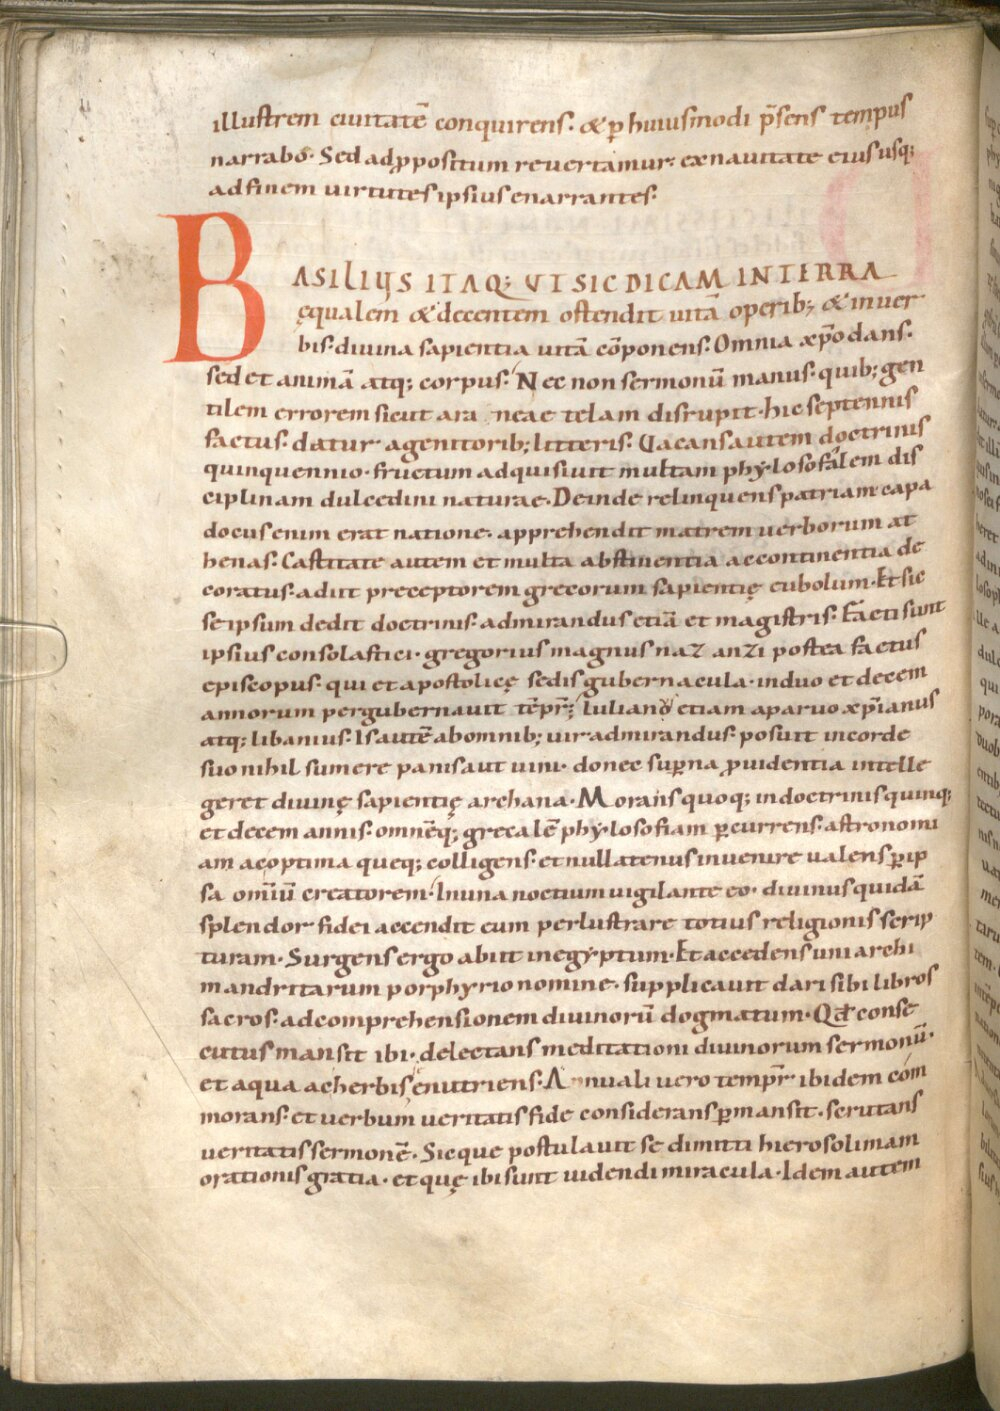 illustrem ciuitatē conquirens· & p̄ huiusmodi p̄sens tempus
narrabo· Sed ad ꝓpositum reuertamur· ex nauitate eius usq;
ad finem uirtutes ipsius enarrantes·
BASILIUS ITAQ; VT SIC DICAM IN TERRA
ęqualem & decentem ostendit uitā operib; & in uer
bis· diuina sapientia uitā cōponens· Omnia xp̄o dans·
sed et animā atq; corpus· Nec non sermonū manus· quib; gen
tilem errorem sicut ara neae telam disrupit· hic septennis
factus· datur a genitorib; litteris· Uacans autem doctrinis
quinquennio· fructum adquisiuit multam phylosofalem dis
ciplinam dulcedini naturae· Deinde relinquens patriam capa
docus enim erat natione· apprehendit matrem uerborum at
henas· Castitate autem et multa abstinentia ac continentia de
coratus· adiit preceptorem grecorum sapientię eubolum· Et sic
se ipsum dedit doctrinis· admirandus etiā et magistris· Facti sunt
ipsius consolastici· gregorius magnus naZanZi postea factus
episcopus· qui et apostolicę sedis gubernacula· in duo et decem
annorum pergubernauit tēpr̄; Iulianus etiam a paruo xp̄ianus
atq; libanius· Is autē ab omnib; uir admirandus· posuit in corde
suo nihil sumere panis aut uini· donec sup̄na ꝓuidentia intelle
geret diuinę sapientię archana· Morans quoq; in doctrinis quinq;
et decem annis· omnēq; grecalē phylosofiam p̄currens· astronomi
am ac optima queq; colligens· et nullatenus inuenire ualens p̄ ip
sa omīū creatorem· In una noctium uigilante eo· diuinus quidā
splendor fidei accendit eum perlustrare totius religionis scrip
turam· Surgens ergo abiit in egyptum· Et accedens uni archi
mandritarum porphyrio nomine· supplicauit dari sibi libros
sacros· ad comprehensionem diuinorū dogmatum· Qđ conse
cutus mansit ibi· delectans meditationi diuinorum sermonū·
et aqua ac herbis enutriens· Annuali uero tempr̄ ibidem com
morans· et uerbum ueritatis fide considerans p̄mansit· scrutans
ueritatis sermonē· Sicque postulauit se dimitti hierosolimam
orationis gratia· et quę ibi sunt uidendi miracula· Idem autem